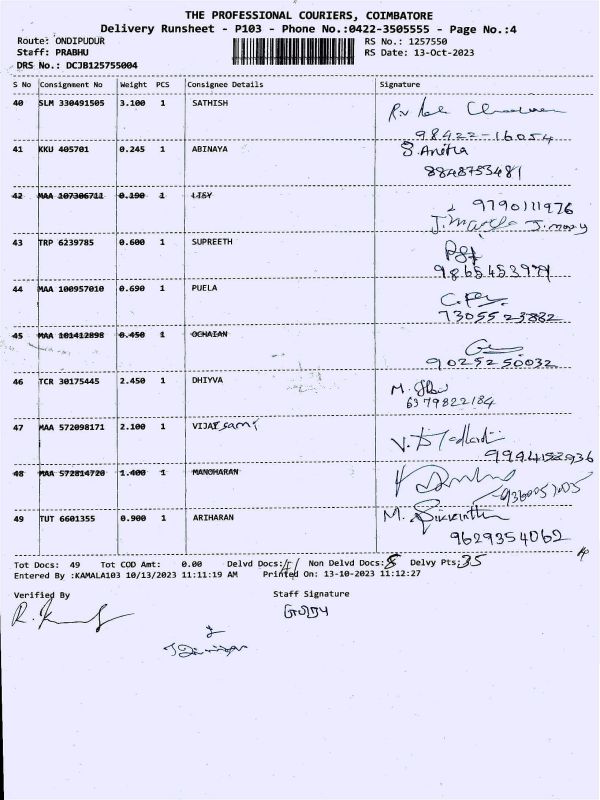 THE PROFESSIONAL COURIERS, COIMBATORE
Delivery Runsheet - P103 - Phone No.:0422-3505555 - Page No.:4
Route: ONDIPUDUR RS No.: 1257550
Staff: PRABHU RS Date: 13-Oct-2023
DRS No.: DCJB125755004
S No Consignment No Weight PCS Consignee Details Signature
40 SLM 330491505 3.100 1 SATHISH
98422-16054
41 KKU 405701 0.245 1 ABINAYA S. Anitha
8848753481
42 MAA 107306711 0.190 1 LISY
9790111976
J. mary
43 TRP 6239785 0.600 1 SUPREETH
44 MAA 100957010 0.690 1 PUELA
73055 23882
45 MAA 101412898 0.450 1 OCHAIAN
90252 50032
46 TCR 30175445 2.450 1 DHIYVA M.
6379822184
47 MAA 572098171 2.100 1 VIJAY sami
48 MAA 572814720 1.400 1 MANOHARAN
49 TUT 6601355 0.900 1 ARIHARAN M.
9629354062
Tot Docs: 49 Tot COD Amt: 0.00 Delvd Docs: Non Delvd Docs:8 Delvy Pts:35
Entered By :KAMALA103 10/13/2023 11:11:19 AM Printed On: 13-10-2023 11:12:27
Verified By Staff Signature